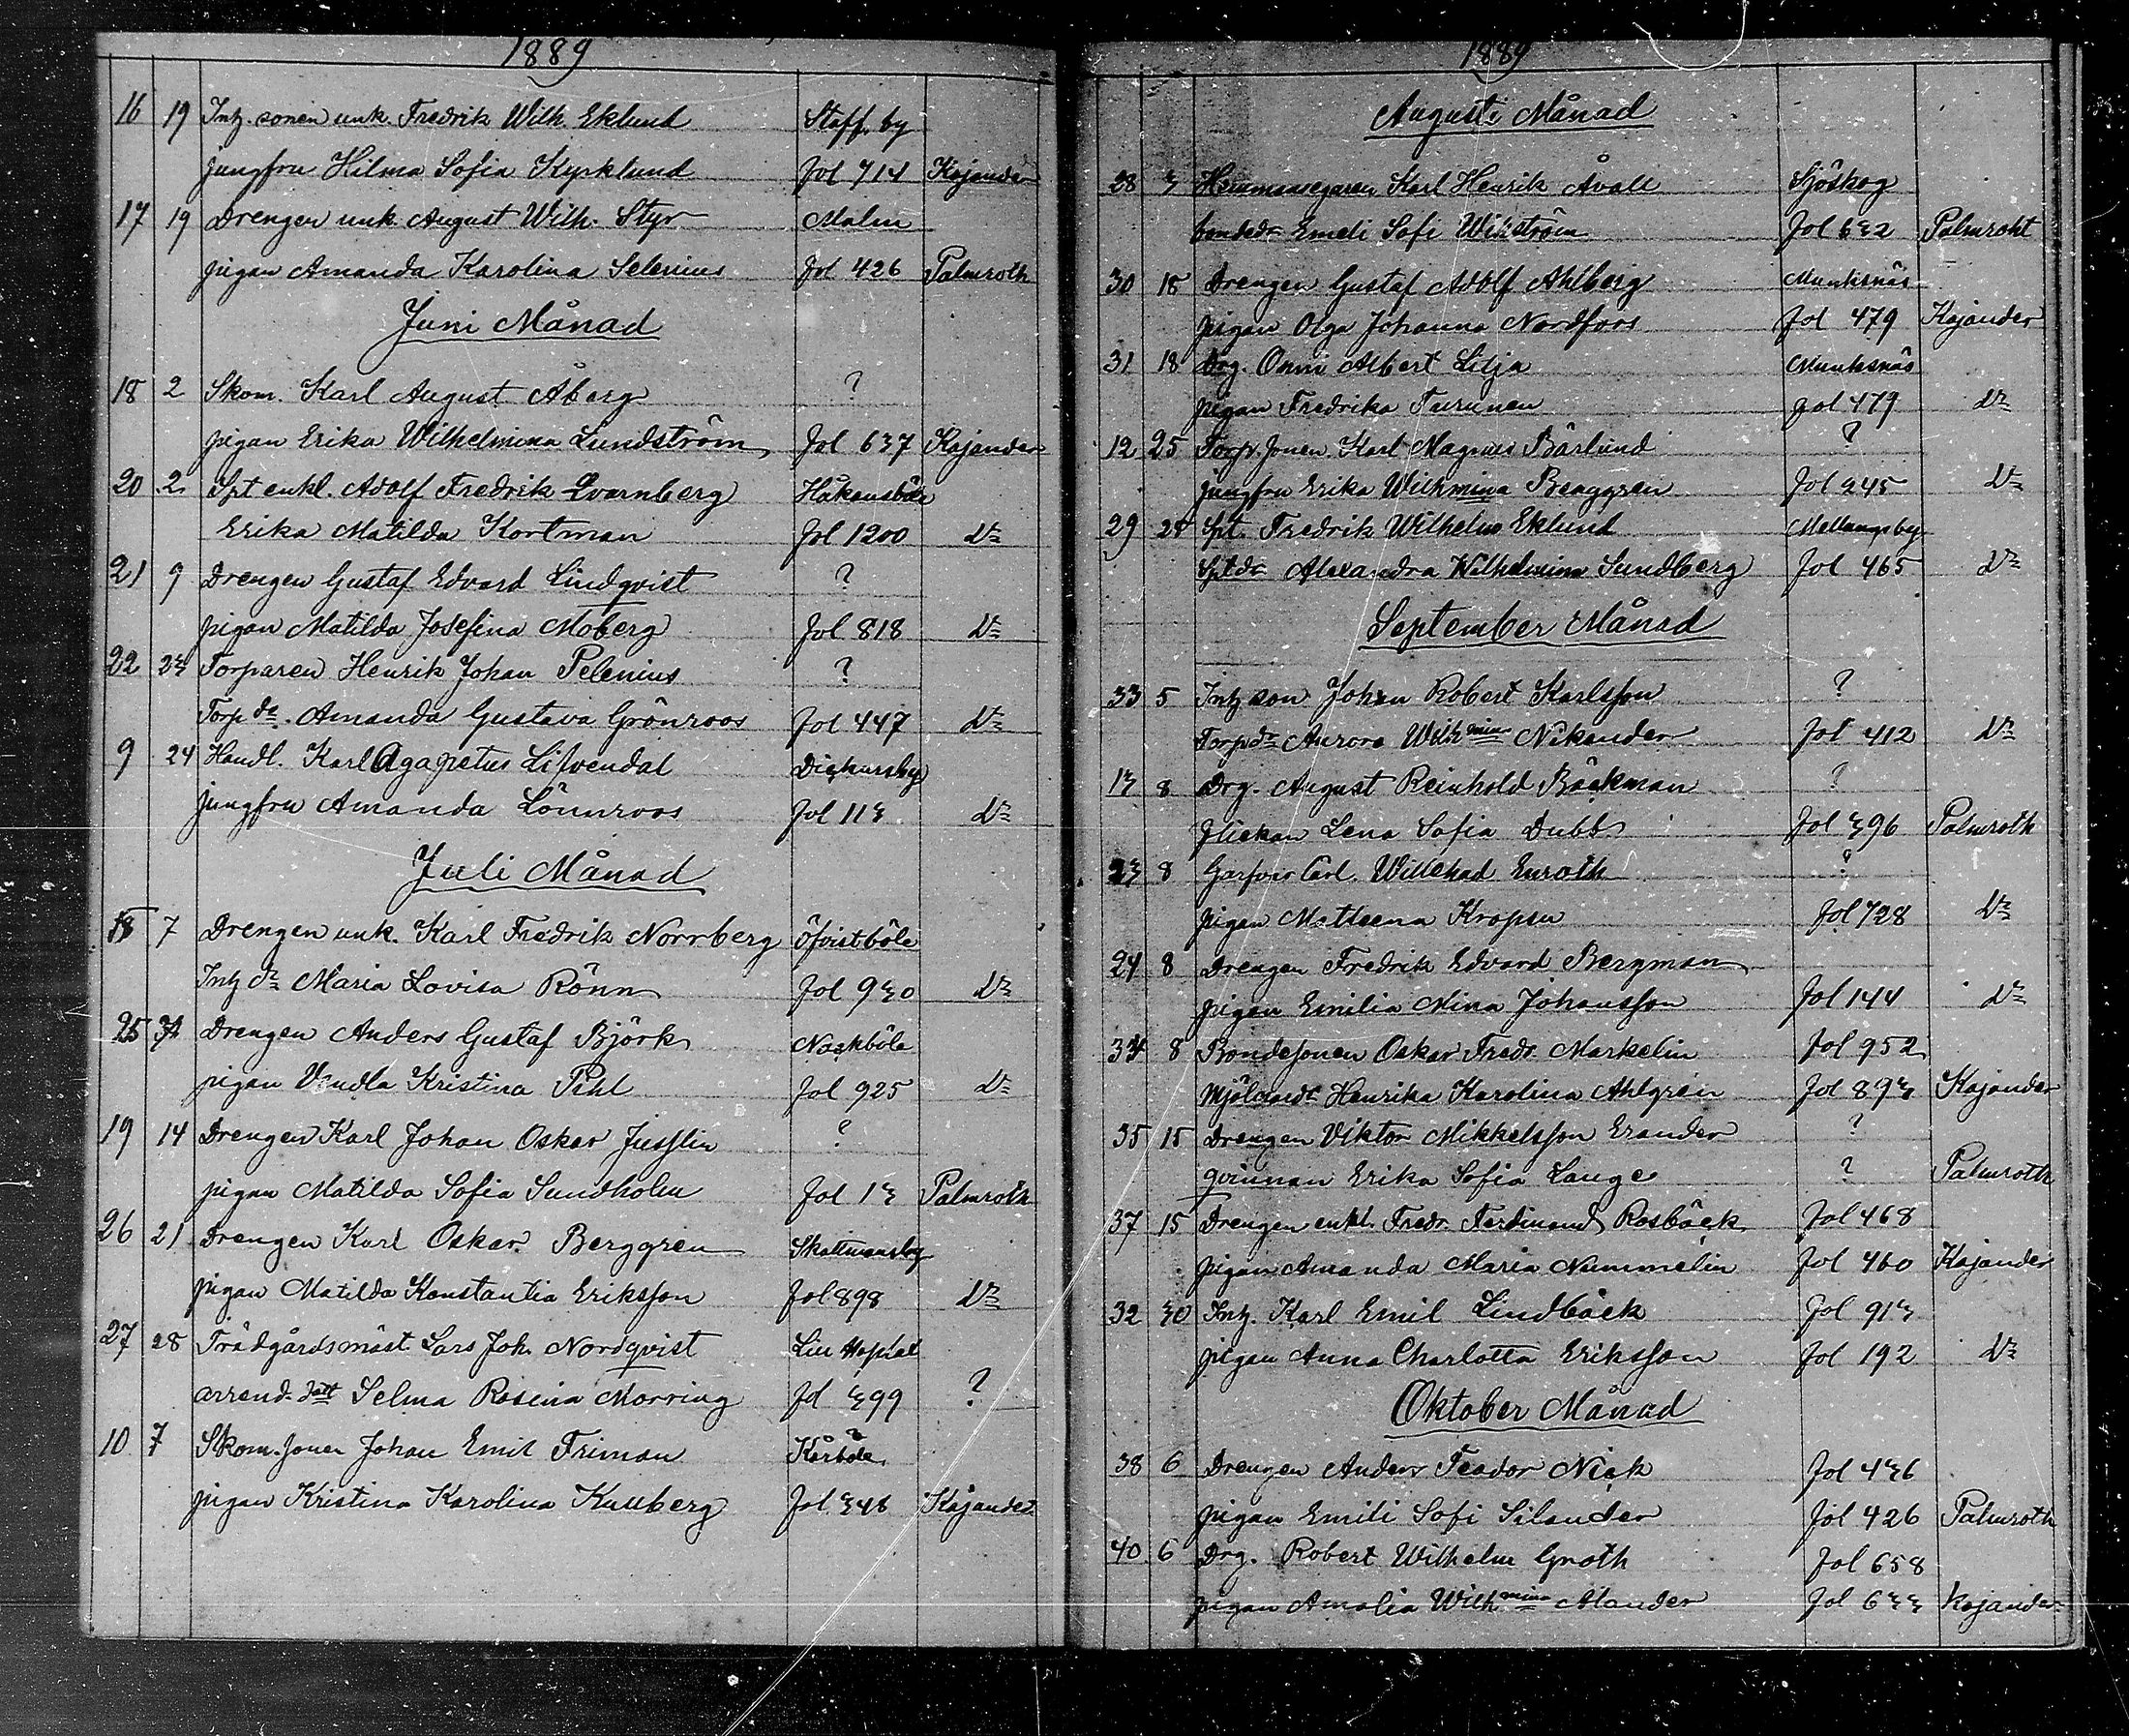 1889
16 19 Inh. sonen unk. Fredrik Wilh. Eklund Staff. by
jungfru Hilma Sofia Kyrklund fol 714 Kajander
17 19 Drengen unk. August Wilh. Styr Malm
pigan Amanda Karolina Selenius fol 426 Palmroth
Juni Månad
18 2 Skom. Karl August Åberg ?
pigan Erika Wilhelmina Lundström fol 637 Kajander
20 2 Spt enkl. Adolf Fredrik Qvarnberg Håkansböle
Erika Matilda Kortman fol 1200 Do
21 9 Drengen Gustaf Edvard Lindqvist ?
pigan Matilda Josefina Moberg fol 818 Do
22 23 Torparen Henrik Johan Pelenius ?
Torp dr. Amanda Gustava Grönroos fol 447 Do
9 24 Handl. Karl Agapetus Lifvendal Dickursby
jungfru Amanda Lönnroos fol 113 Do
Juli Månad
18 7 Drengen unk. Karl Fredrik Norrberg Öfvistböle
Inh dr Maria Lovisa Rönn fol 930 Do
25 Drengen Anders Gustaf Björk Nackböle
pigan Vendla Kristina Pihl fol 925 Do
19 14 Drengen Karl Johan Oskar Jusslin ?
pigan Matilda Sofia Sundholm fol 13 Palmroth
26 21 Drengen Karl Oskar Berggren Skattmansby
pigan Matilda Konstantia Eriksson fol 898 Do
27 28 Trädgårdsmäst Lars Joh. Nordqvist Lill Hoplax
arrend. dott Selma Rosina Morring fol 399 ?
10 7 Skom. sonen Johan Emil Friman Kårböle
pigan Kristina Karolina Kullberg fol 348 Kajander
1889
Augusti Månad
28 3 Hemmansegaren Karl Henrik Åvall Sjöskog
bondedr Emeli Sofi Wikström fol 632 Palmroht
30 18 Drengen Gustaf Adolf Ahlberg Munksnäs
pigan Olga Johanna Nordfors fol 479 Kajander
31 18 Drg. Onni Albert Lilja Munksnäs
pigan Fredrika Turunen fol 479 Do
12 25 Torp. sonen Karl Magnus Bärlund ?
jungfru Erika Wilhmina Berggren fol 245 Do
29 25 Spt. Fredrik Wilhelm Eklund Mellungsby
Sptdr Alexandra Wilhelmina Sundberg fol 465 Do
September Månad
33 5 Inh son Johan Robert Karlsson ?
Torpdr Aurora Wilhmina Nikander fol 412 Do
13 8 Drg. August Reinhold Bäckman ?
flickan Lena Sofia Dubb fol 396 Palmroth
23 8 Garfvar Carl Willehad Enroth ?
pigan Matleena Kropsu fol 728 Do
24 8 Drengen Fredrik Edvard Bergman
pigan Emilia Mina Johansson fol 144 Do
34 8 Bondesonen Oskar Fredr. Markelin fol 952
Mjölnardr Henrika Karolina Ahlgren fol 893 Kajander
35 15 Drengen Viktor Mikkelsson Erander ?
qvinnan Erika Sofia Lange ? Palmroth
37 15 Drengen enkl. Fredr. Ferdinand Rosbäck fol 468
pigan Amanda Maria Nummelin fol 460 Kajander
32 30 Inh. Karl Emil Lindbäck fol 913
pigan Anna Charlotta Eriksson fol 192 Do
Oktober Månad
38 6 Drengen Anders Teodor Nick fol 436
pigan Emili Sofi Silander fol 426 Palmroth
40 6 Drg. Robert Wilhelm Groth fol 658
pigan Amalia Wilhmina Alander fol 633 Kajander